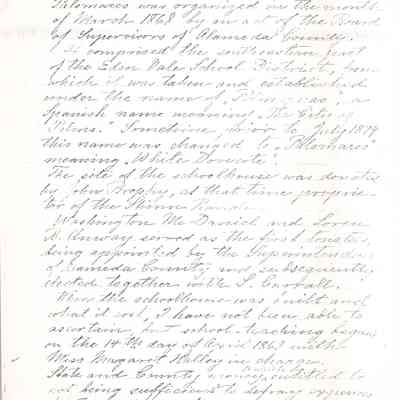 Palomares was organized in the month
of March 1868 by an act of the Board
of Supervisors of Alameda County.
It comprised the southeastern part
of the Eden Vale School District, from
which it was taken and established
under the name of, a
Spanish name meaning "The City of
." Sometime, prior to July 1879
this name was changed to "Palomares"
meaning "White Dovecote".
The site of the schoolhouse was donated
by John Brophy, at that time proprie-
tor of the Ranch.
Washington Mc Daniel and Loren
A. served as the first trustees,
being appointed by the Superintendent
of Alameda County and subsequently
elected together with S. Carroll.
When the schoolhouse was built and
what it cost, I have not been able to
ascertain, but school-teaching began
on the 14th day of April 1868 with
Miss Margaret Halley in charge.
State and County money entitled to
not being sufficient to defray expenses